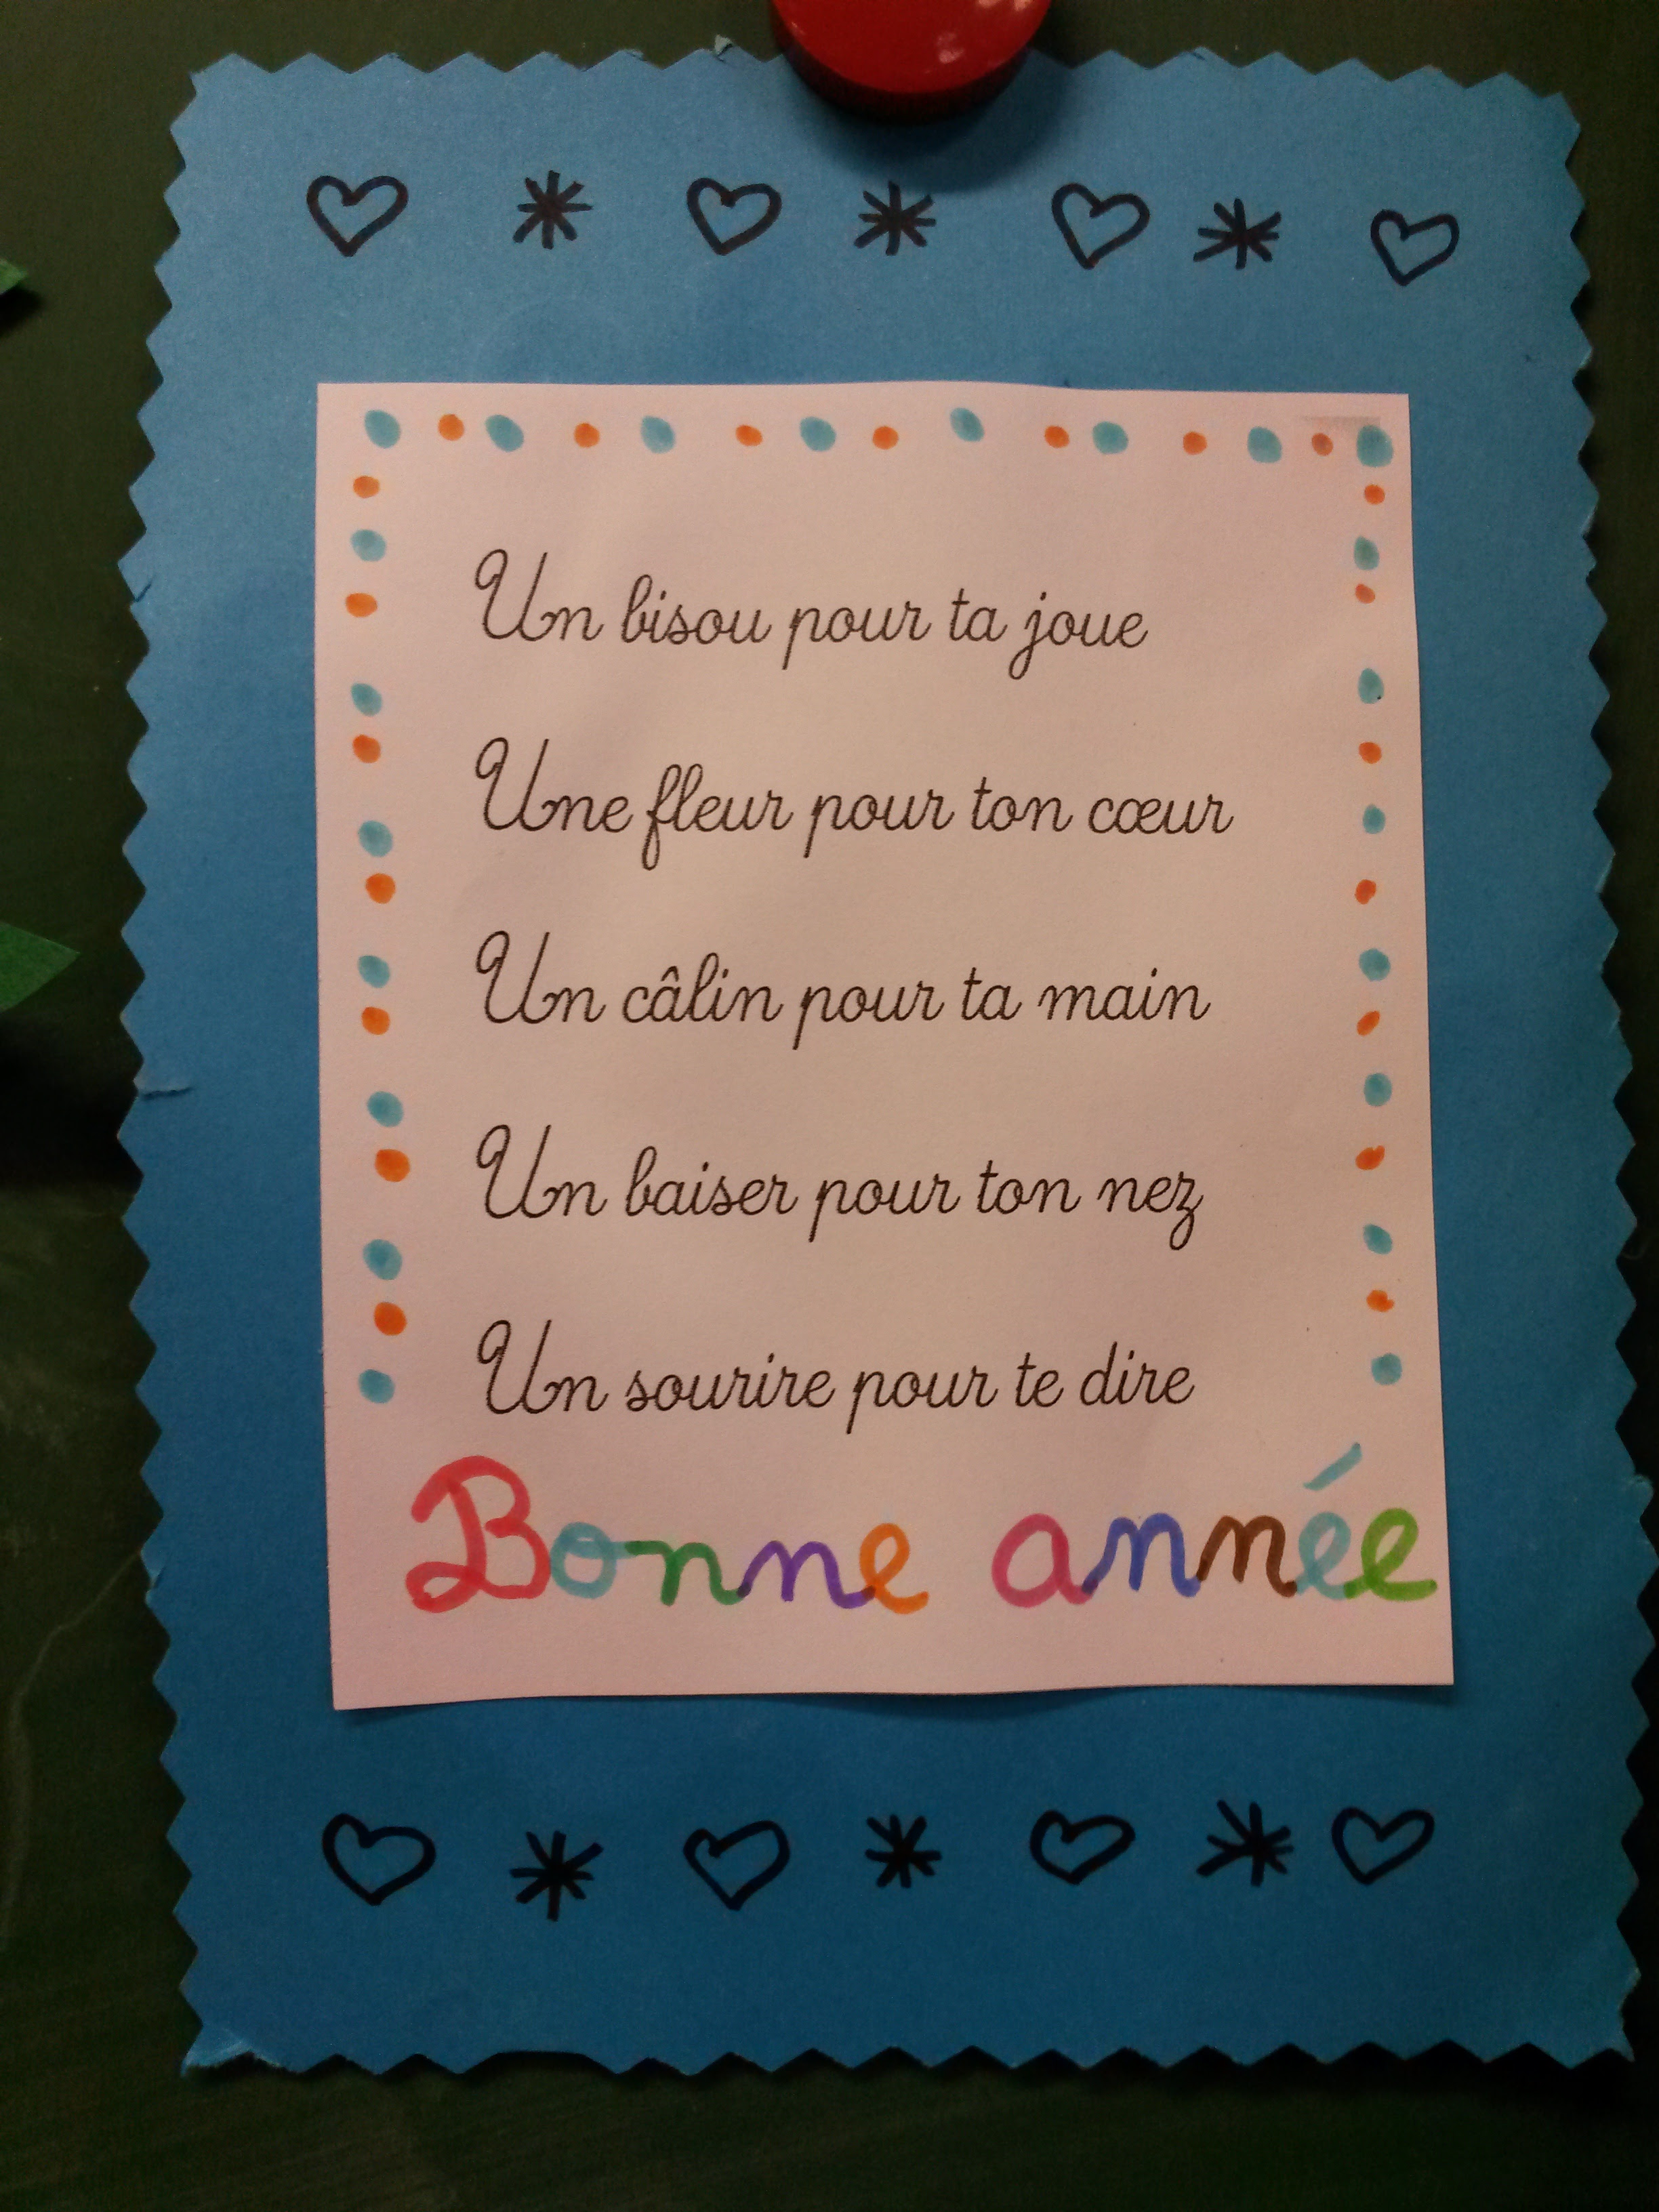 Un bisou pour ta joue
Une fleur pour ton cœur
Un câlin pour ta main
Un baiser pour ton nez
Un sourire pour te dire
Bonne année